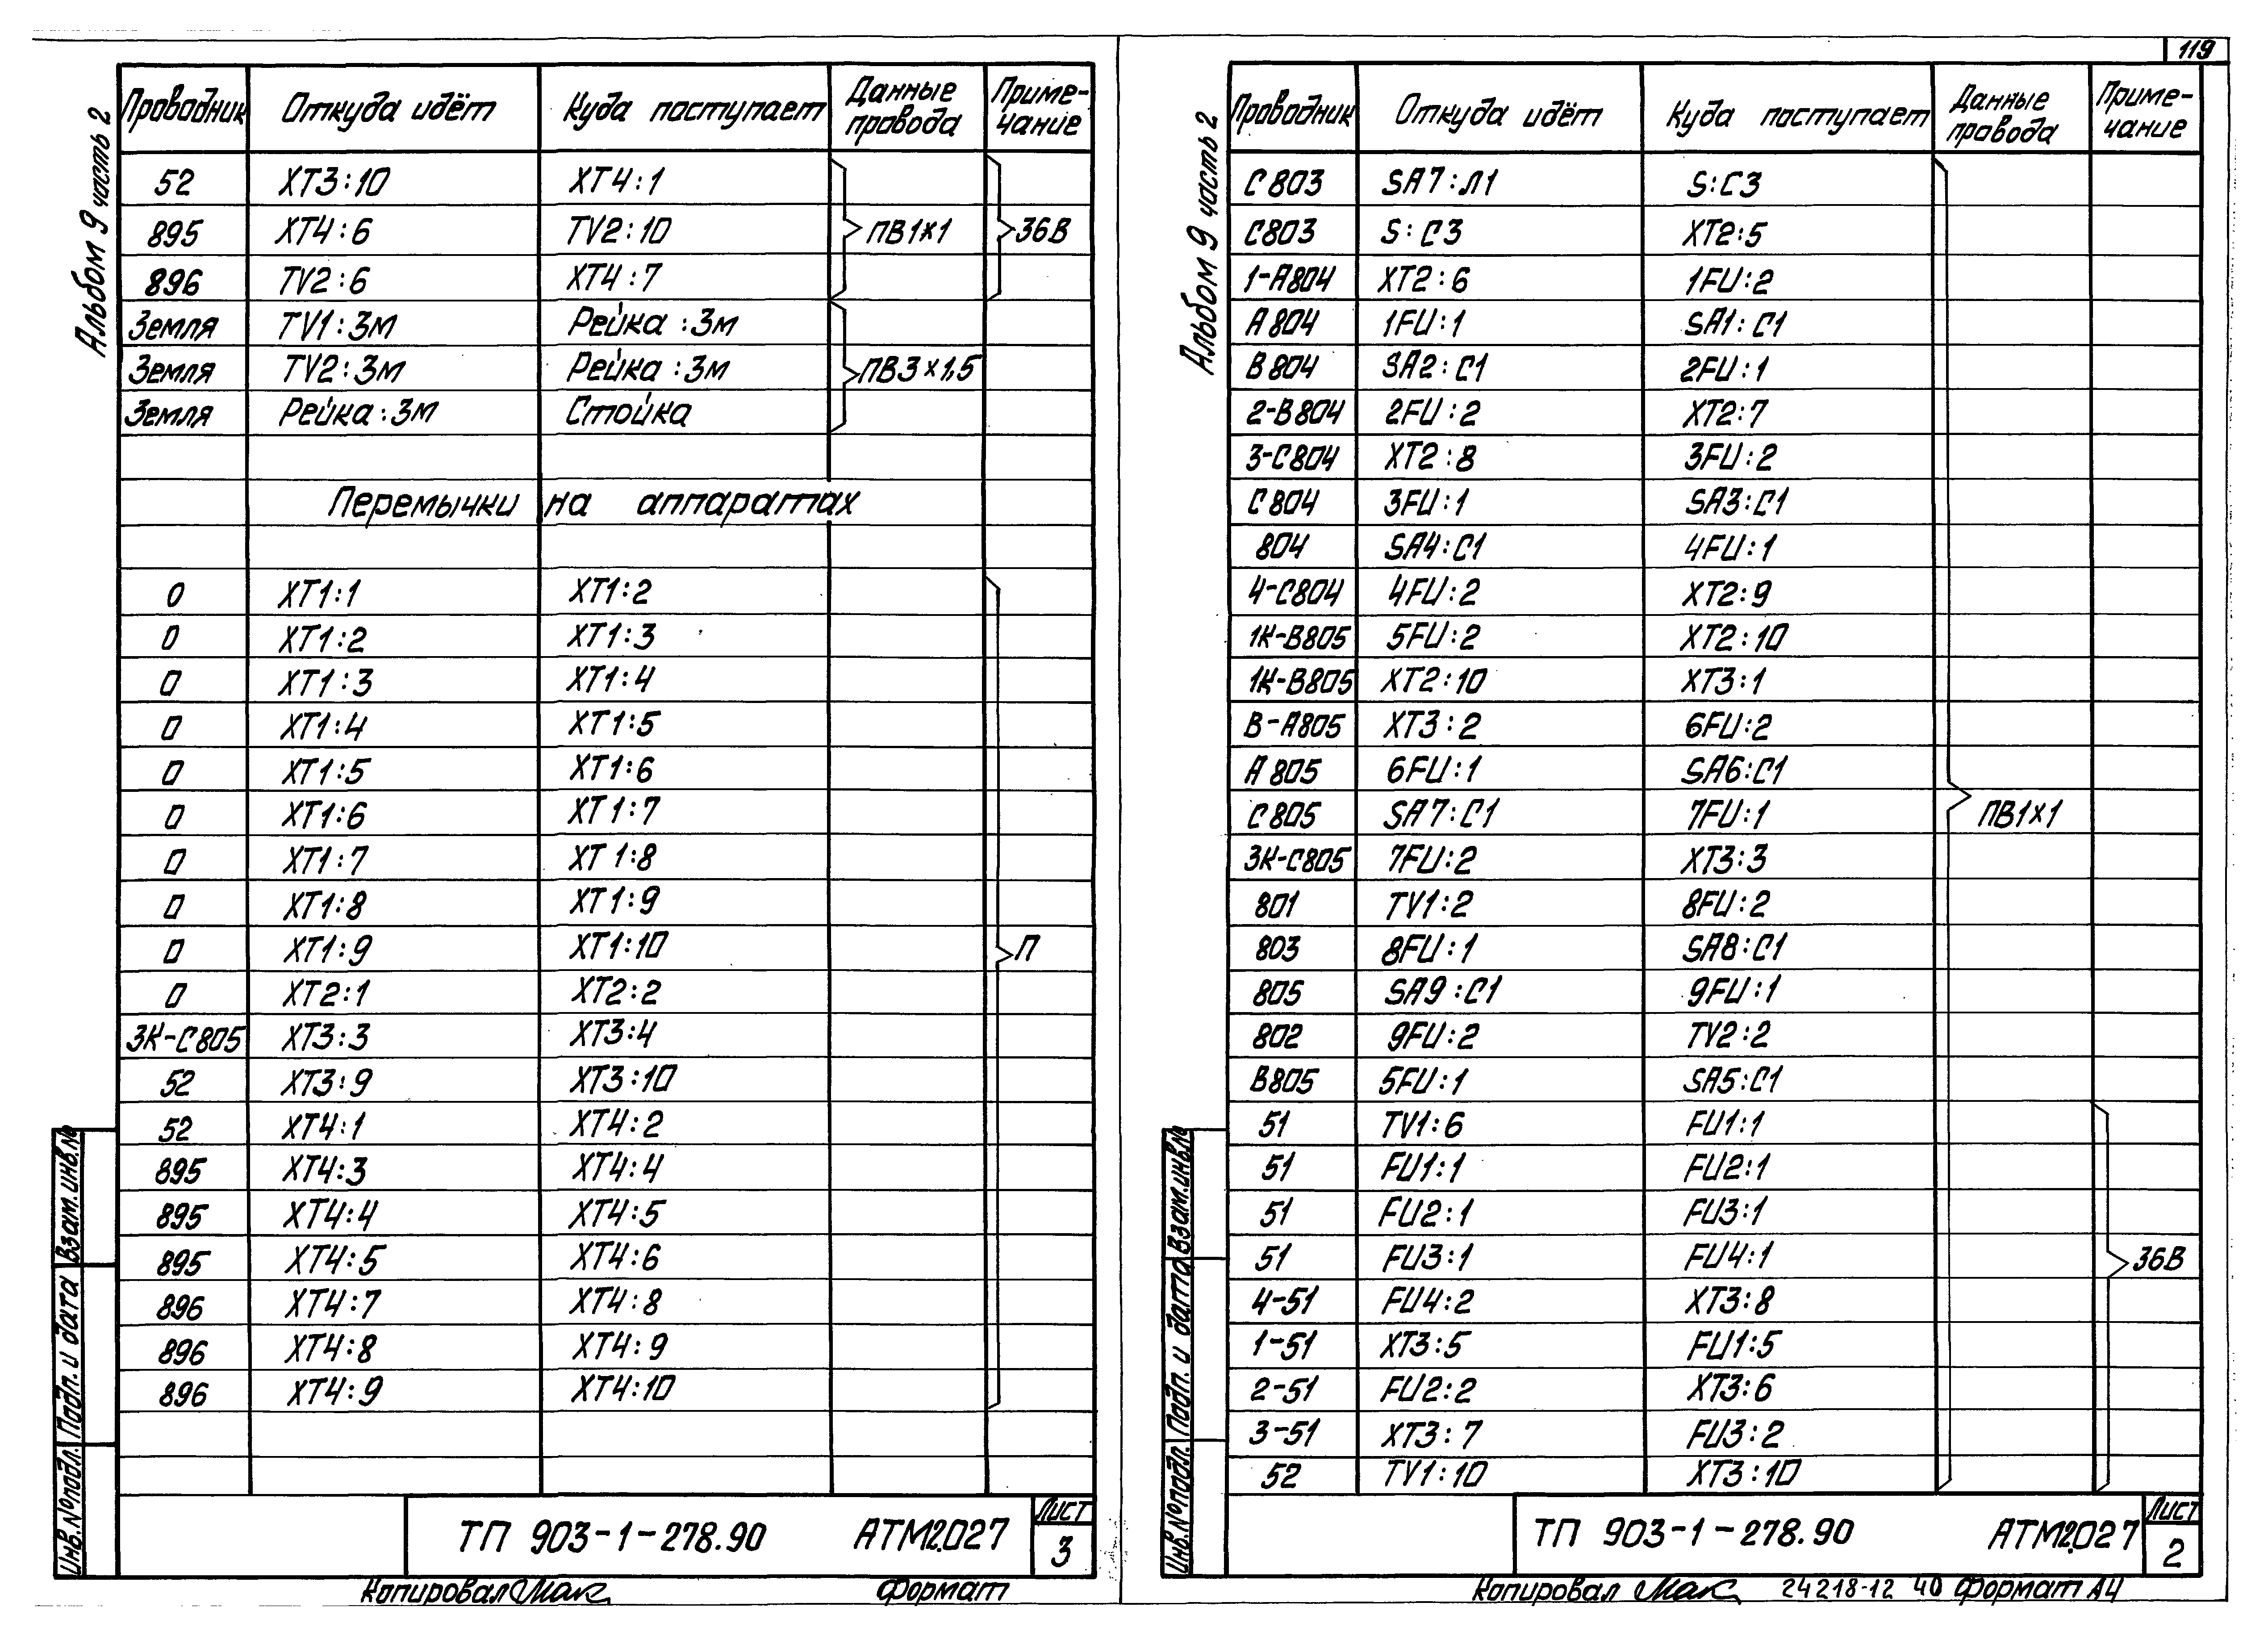 119
Альбом 9 часть 2
Проводник Откуда идёт Куда поступает Данные провода Приме-чание
52 XT3:10 XT4:1
895 XT4:6 TV2:10 ПВ1х1 36В
896 TV2:6 XT4:7
Земля TV1:Зм Рейка:Зм
Земля TV2:Зм Рейка:Зм ПВ3х1,5
Земля Рейка:Зм Стойка
Перемычки на аппаратах
0 XT1:1 XT1:2
0 XT1:2 XT1:3
0 XT1:3 XT1:4
0 XT1:4 XT1:5
0 XT1:5 XT1:6
0 XT1:6 XT1:7
0 XT1:7 XT1:8
0 XT1:8 XT1:9
0 XT1:9 XT1:10 П
0 XT2:1 XT2:2
3К-С805 XT3:3 XT3:4
52 XT3:9 XT3:10
52 XT4:1 XT4:2
895 XT4:3 XT4:4
895 XT4:4 XT4:5
895 XT4:5 XT4:6
896 XT4:7 XT4:8
896 XT4:8 XT4:9
896 XT4:9 XT4:10
Инв.№подл. Подп. и дата Взам.инв.№
ТП 903-1-278.90 АТМ2.027 Лист 3
Копировал Мак Формат
Альбом 9 часть 2
Проводник Откуда идёт Куда поступает Данные провода Приме-чание
С803 SA7:Л1 S:С3
С803 S:С3 XT2:5
1-А804 XT2:6 1FU:2
А804 1FU:1 SA1:С1
В804 SA2:С1 2FU:1
2-В804 2FU:2 XT2:7
3-С804 XT2:8 3FU:2
С804 3FU:1 SA3:С1
804 SA4:С1 4FU:1
4-С804 4FU:2 XT2:9
1К-В805 5FU:2 XT2:10
1К-В805 XT2:10 XT3:1
В-А805 XT3:2 6FU:2
А805 6FU:1 SA6:С1
С805 SA7:С1 7FU:1 ПВ1х1
3К-С805 7FU:2 XT3:3
801 TV1:2 8FU:2
803 8FU:1 SA8:С1
805 SA9:С1 9FU:1
802 9FU:2 TV2:2
В805 5FU:1 SA5:С1
51 TV1:6 FU1:1
51 FU1:1 FU2:1
51 FU2:1 FU3:1
51 FU3:1 FU4:1 36В
4-51 FU4:2 XT3:8
1-51 XT3:5 FU1:5
2-51 FU2:2 XT3:6
3-51 XT3:7 FU3:2
52 TV1:10 XT3:10
Инв.№подл. Подп. и дата Взам.инв.№
ТП 903-1-278.90 АТМ2.027 Лист 2
Копировал Мак 24218-12 40 Формат А4